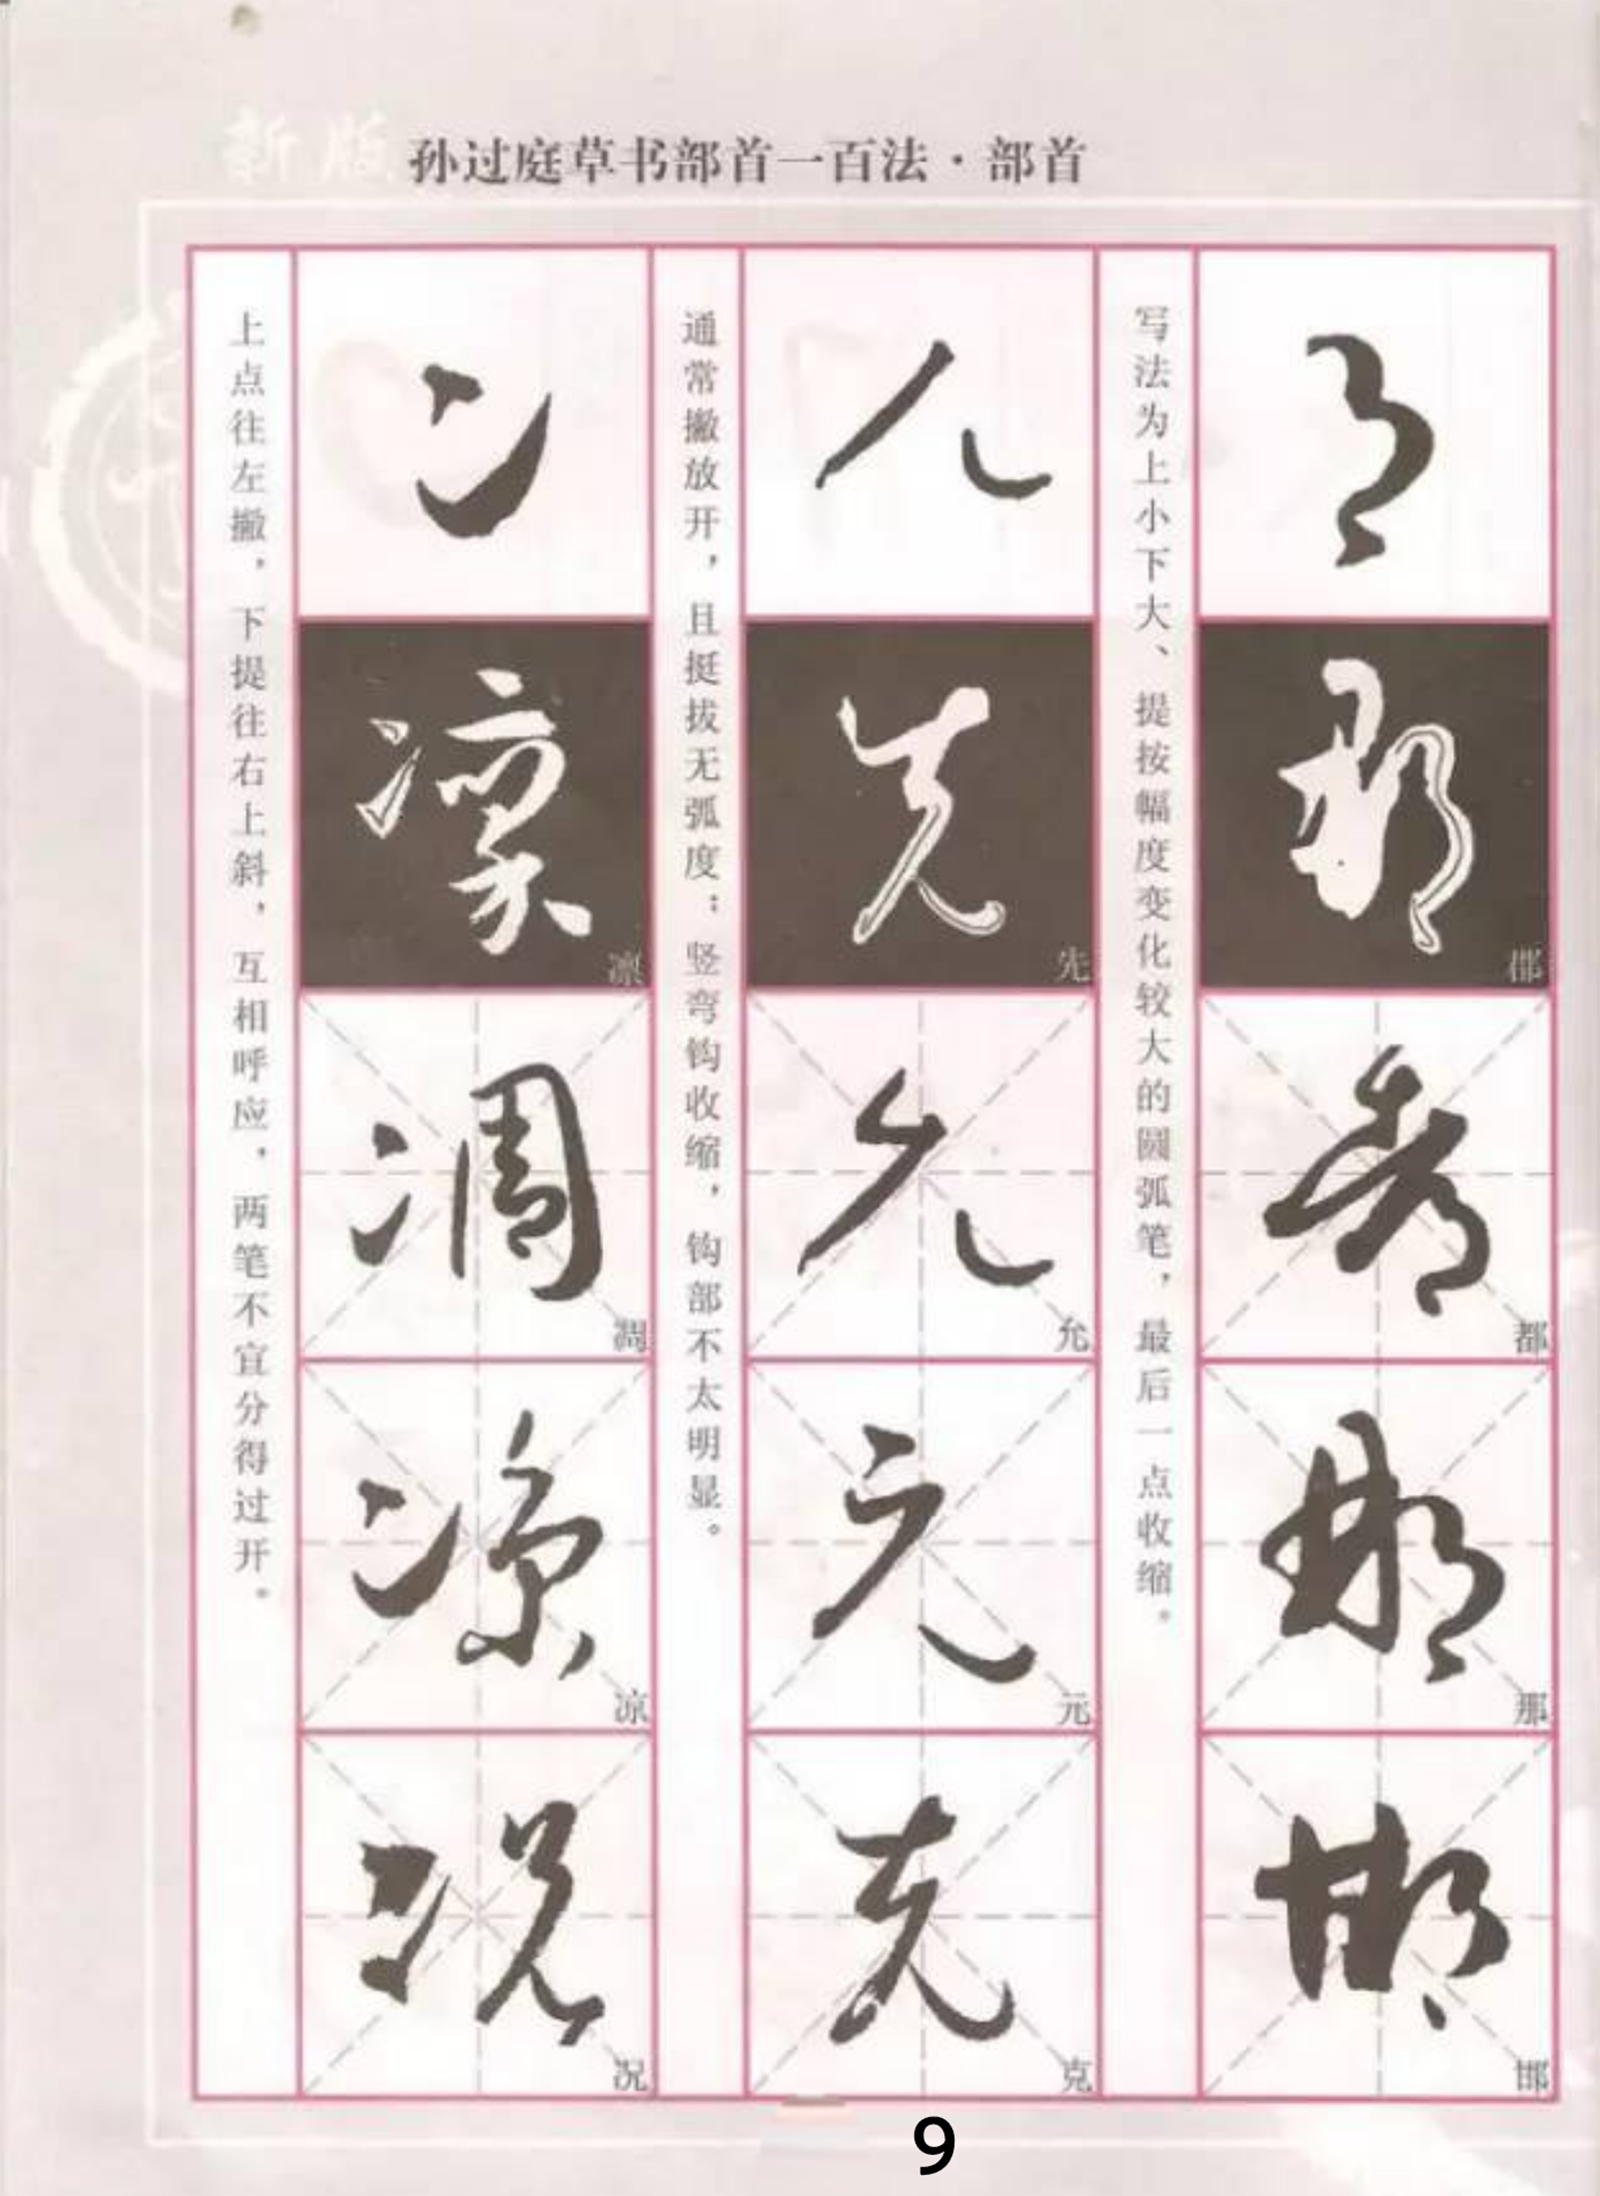 新版 孙过庭草书部首一百法·部首
阝
都
都
那
那
邯
邯
写法为上小下大、提按幅度变化较大的圆弧笔，最后一点收缩。
儿
先
先
允
允
元
元
克
克
通常撇放开，且挺拔无弧度；竖弯钩收缩，钩部不太明显。
冫
凛
凛
凋
凋
凉
凉
况
况
上点往左撇，下提往右上斜，互相呼应，两笔不宜分得过开。
9